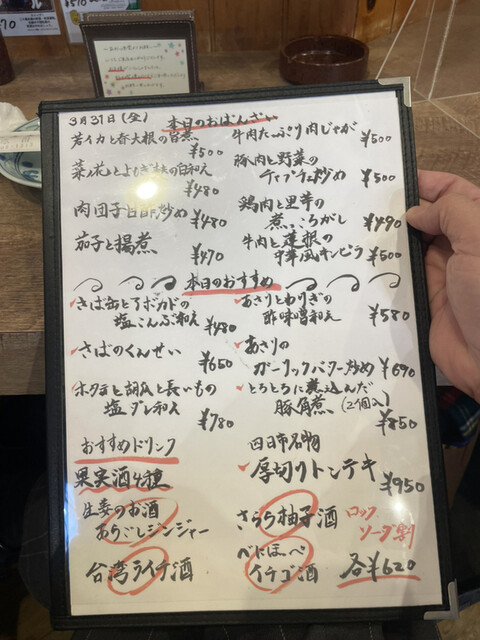 3月31日(金) 本日のおばんざい
若イカと春大根の旨煮
¥500
菜ノ花と
白和え
¥480
肉団子甘酢炒め ¥480
茄子と揚煮 ¥470
牛肉たっぷり肉じゃが ¥500
豚肉と野菜の
チャプチェ炒め ¥500
鶏肉と里芋の
煮っころがし ¥490
牛肉と蓮根の
中華風キンピラ ¥500
本日のおすすめ
さば缶とアボカドの
塩こんぶ和え ¥480
さばのくんせい ¥650
ホタテと胡瓜と長いもの
塩ダレ和え ¥780
あさりとわけぎの
酢味噌和え ¥580
あさりの
ガーリックバター炒め ¥690
とろとろに煮込んだ
豚角煮(2個入) ¥850
四日市名物
厚切りトンテキ ¥950
おすすめドリンク
果実酒4種
生姜のお酒
あらごしジンジャー
台湾ライチ酒
さらら柚子酒
べにほっぺ
イチゴ酒
ロック
ソーダ割
各¥620